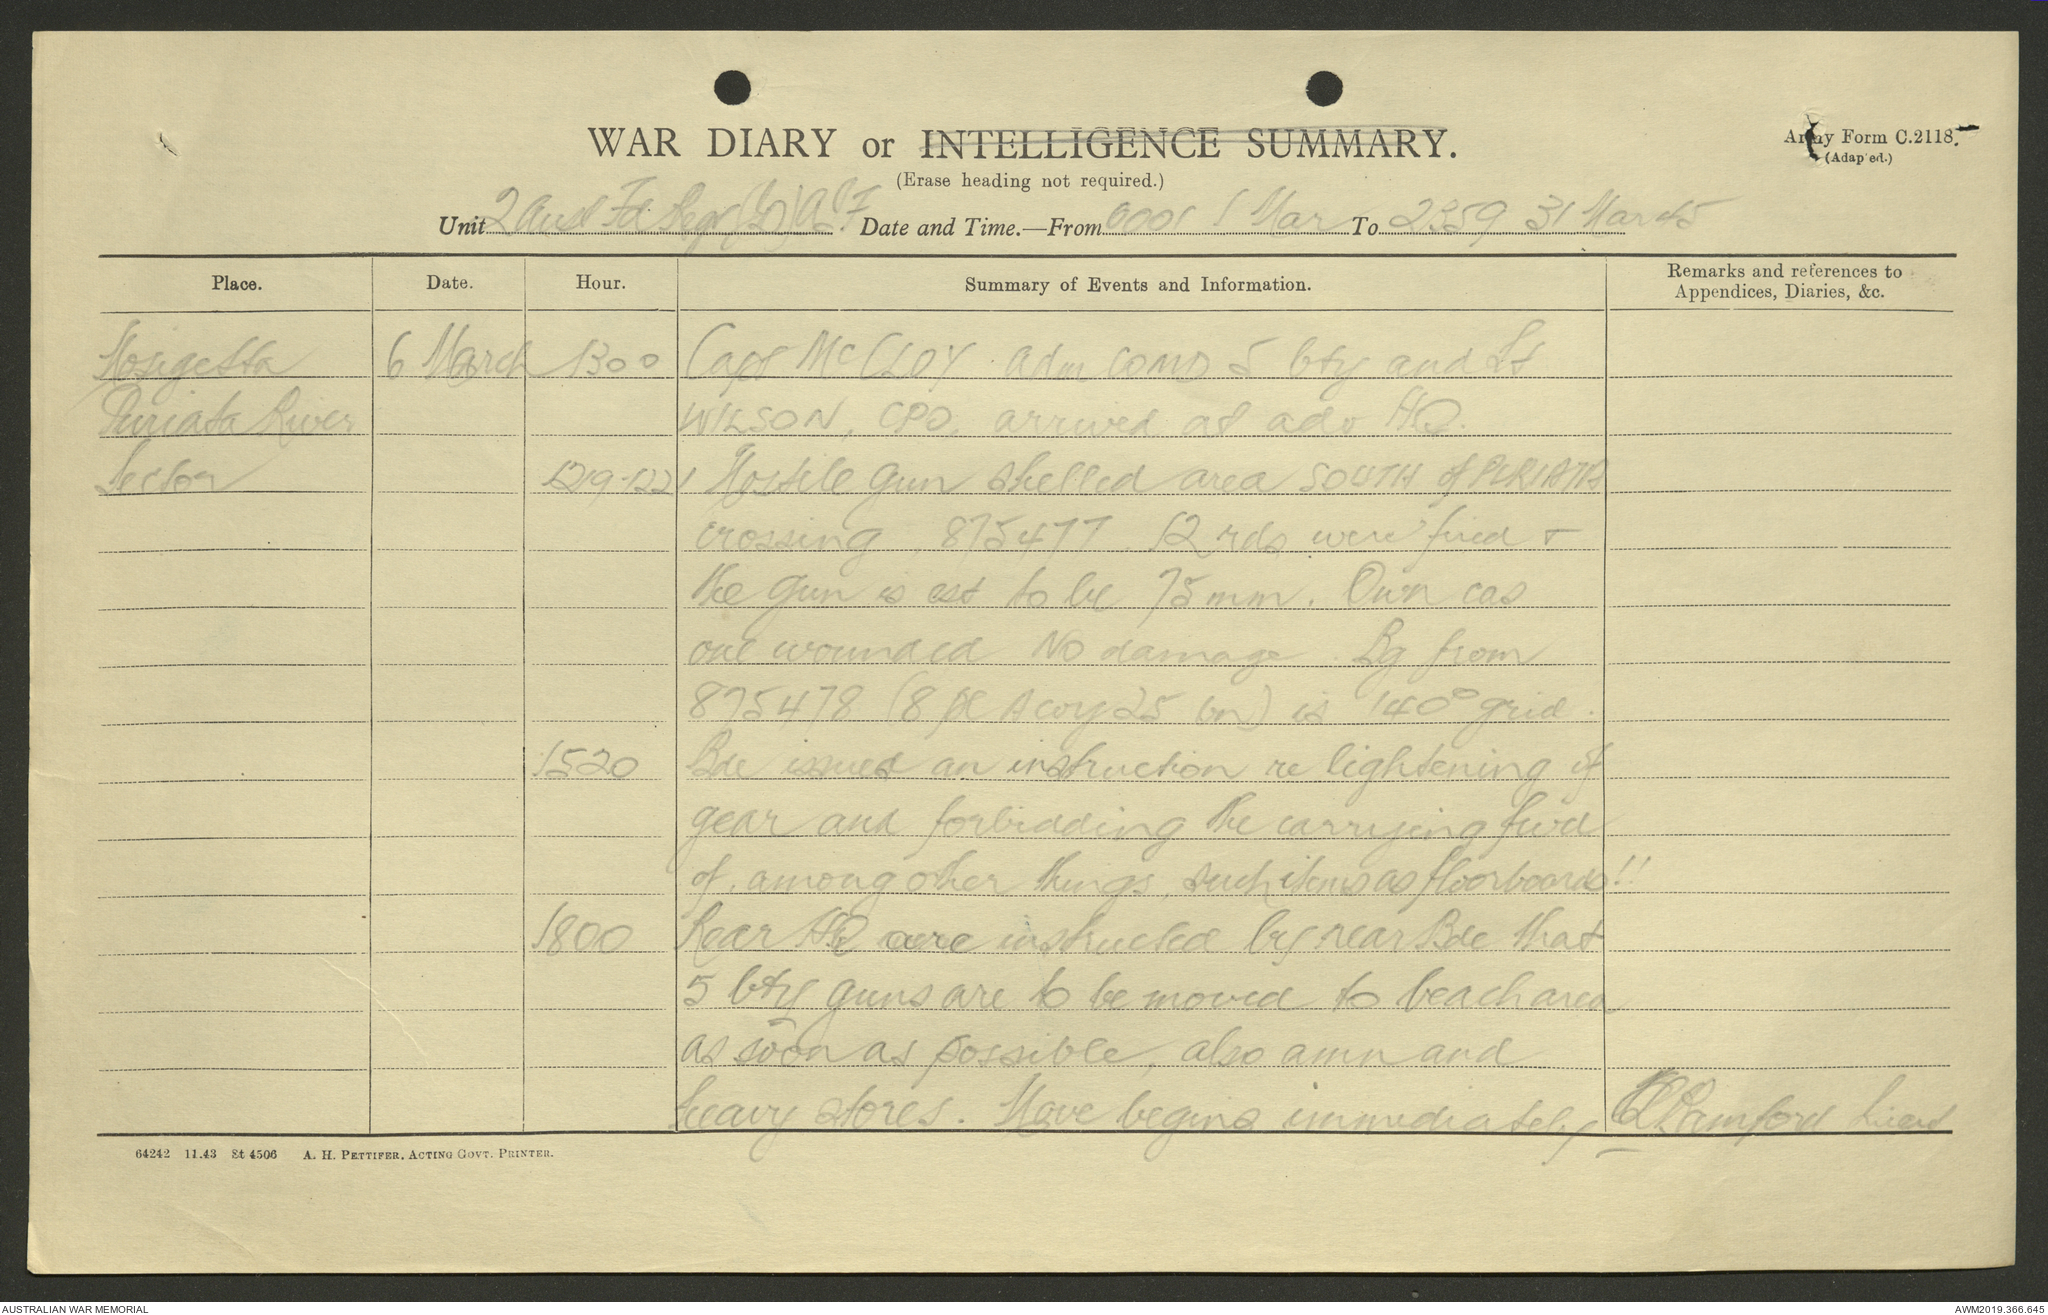 WAR DIARY or INTELLIGENCE SUMMARY.
(Erase heading not required.)
Army Form C.2118.
(Adapted.)
Unit 2 Aust Fd Regt (J) AIF Date and Time.—From 0001 1 Mar To 2359 31 Mar 45
Place.
Date.
Hour.
Summary of Events and Information.
Remarks and references to
Appendices, Diaries, &c.
Mosigetta 6 March 1300 Capt McCLOY adm COMD 5 bty and Lt
Puriata River WILSON, CPO, arrived at adv HQ.
Sector 1219-1221 Hostile gun shelled area SOUTH of PURIATA
crossing, 875477. 12 rds were fired +
the gun is est to be 75 mm. Own cas
one wounded No damage. Bg from
875478 (8 pl A coy 25 bn) is 140° grid.
1520 Bde issued an instruction re lightening of
gear and forbidding the carrying fwd
of, among other things, such items as floorboards!!
1800 Rear HQ were instructed by rear Bde that
5 bty guns are to be moved to beach area
as soon as possible, also amn and
heavy stores. Move begins immediately
Bamford Lieut
64242 11.43 St 4506 A. H. PETTIFER, ACTING GOVT. PRINTER.
AUSTRALIAN WAR MEMORIAL
AWM2019.366.645